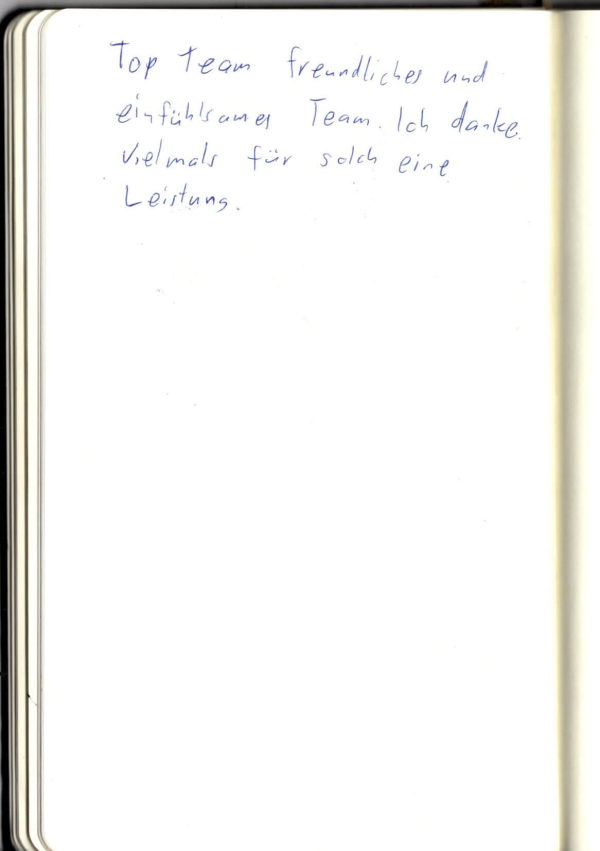 Top Team freundliches und
einfühlsames Team. Ich danke
vielmals für solch eine
Leistung.